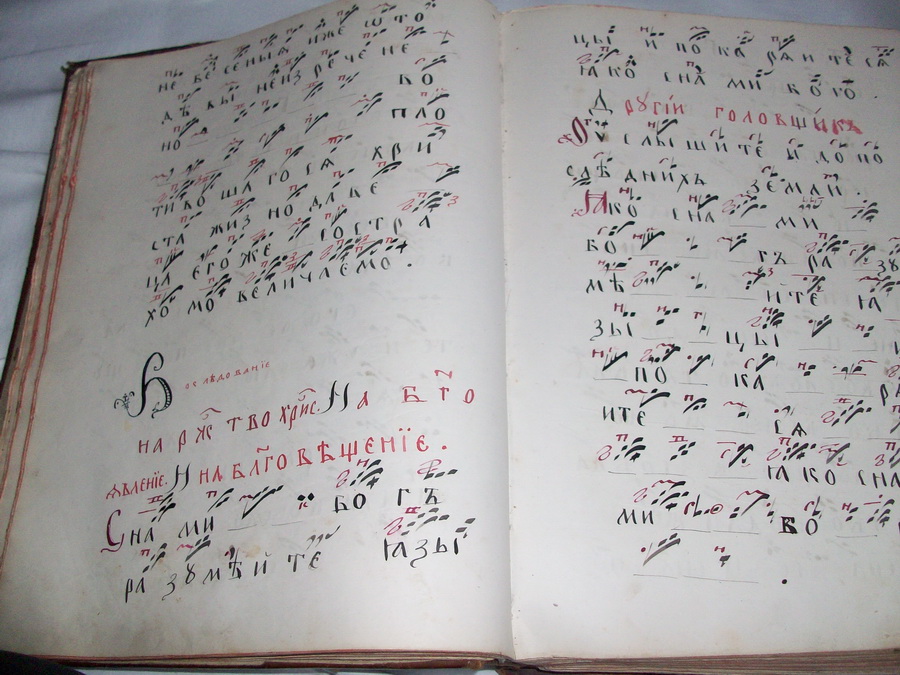 не бесеныѧ иже ѡто
дѣ вы неизрече не
но во
пло
тивошагосѧ хри
ста жизнодаве
ца єгоже состра
хомо величаемо.
Послѣдованїе
на рж҃тво хр҃ис. И на бг҃о
ѧвленїе. И на бл҃говѣщенїе.
Сна ми бо гъ
ра зꙋмѣй те ꙗзы
цы и по ка рѧ и те сѧ
ꙗко сна ми бого.
Дрꙋгїи головщикъ
Оуслышите до по
слѣднихъ земли.
Ꙗко сна ми
бо гъ ра зꙋ
мѣ ите ꙗ
зы цы и
по ка рѧ
ите сѧ
ꙗко сна
ми бо